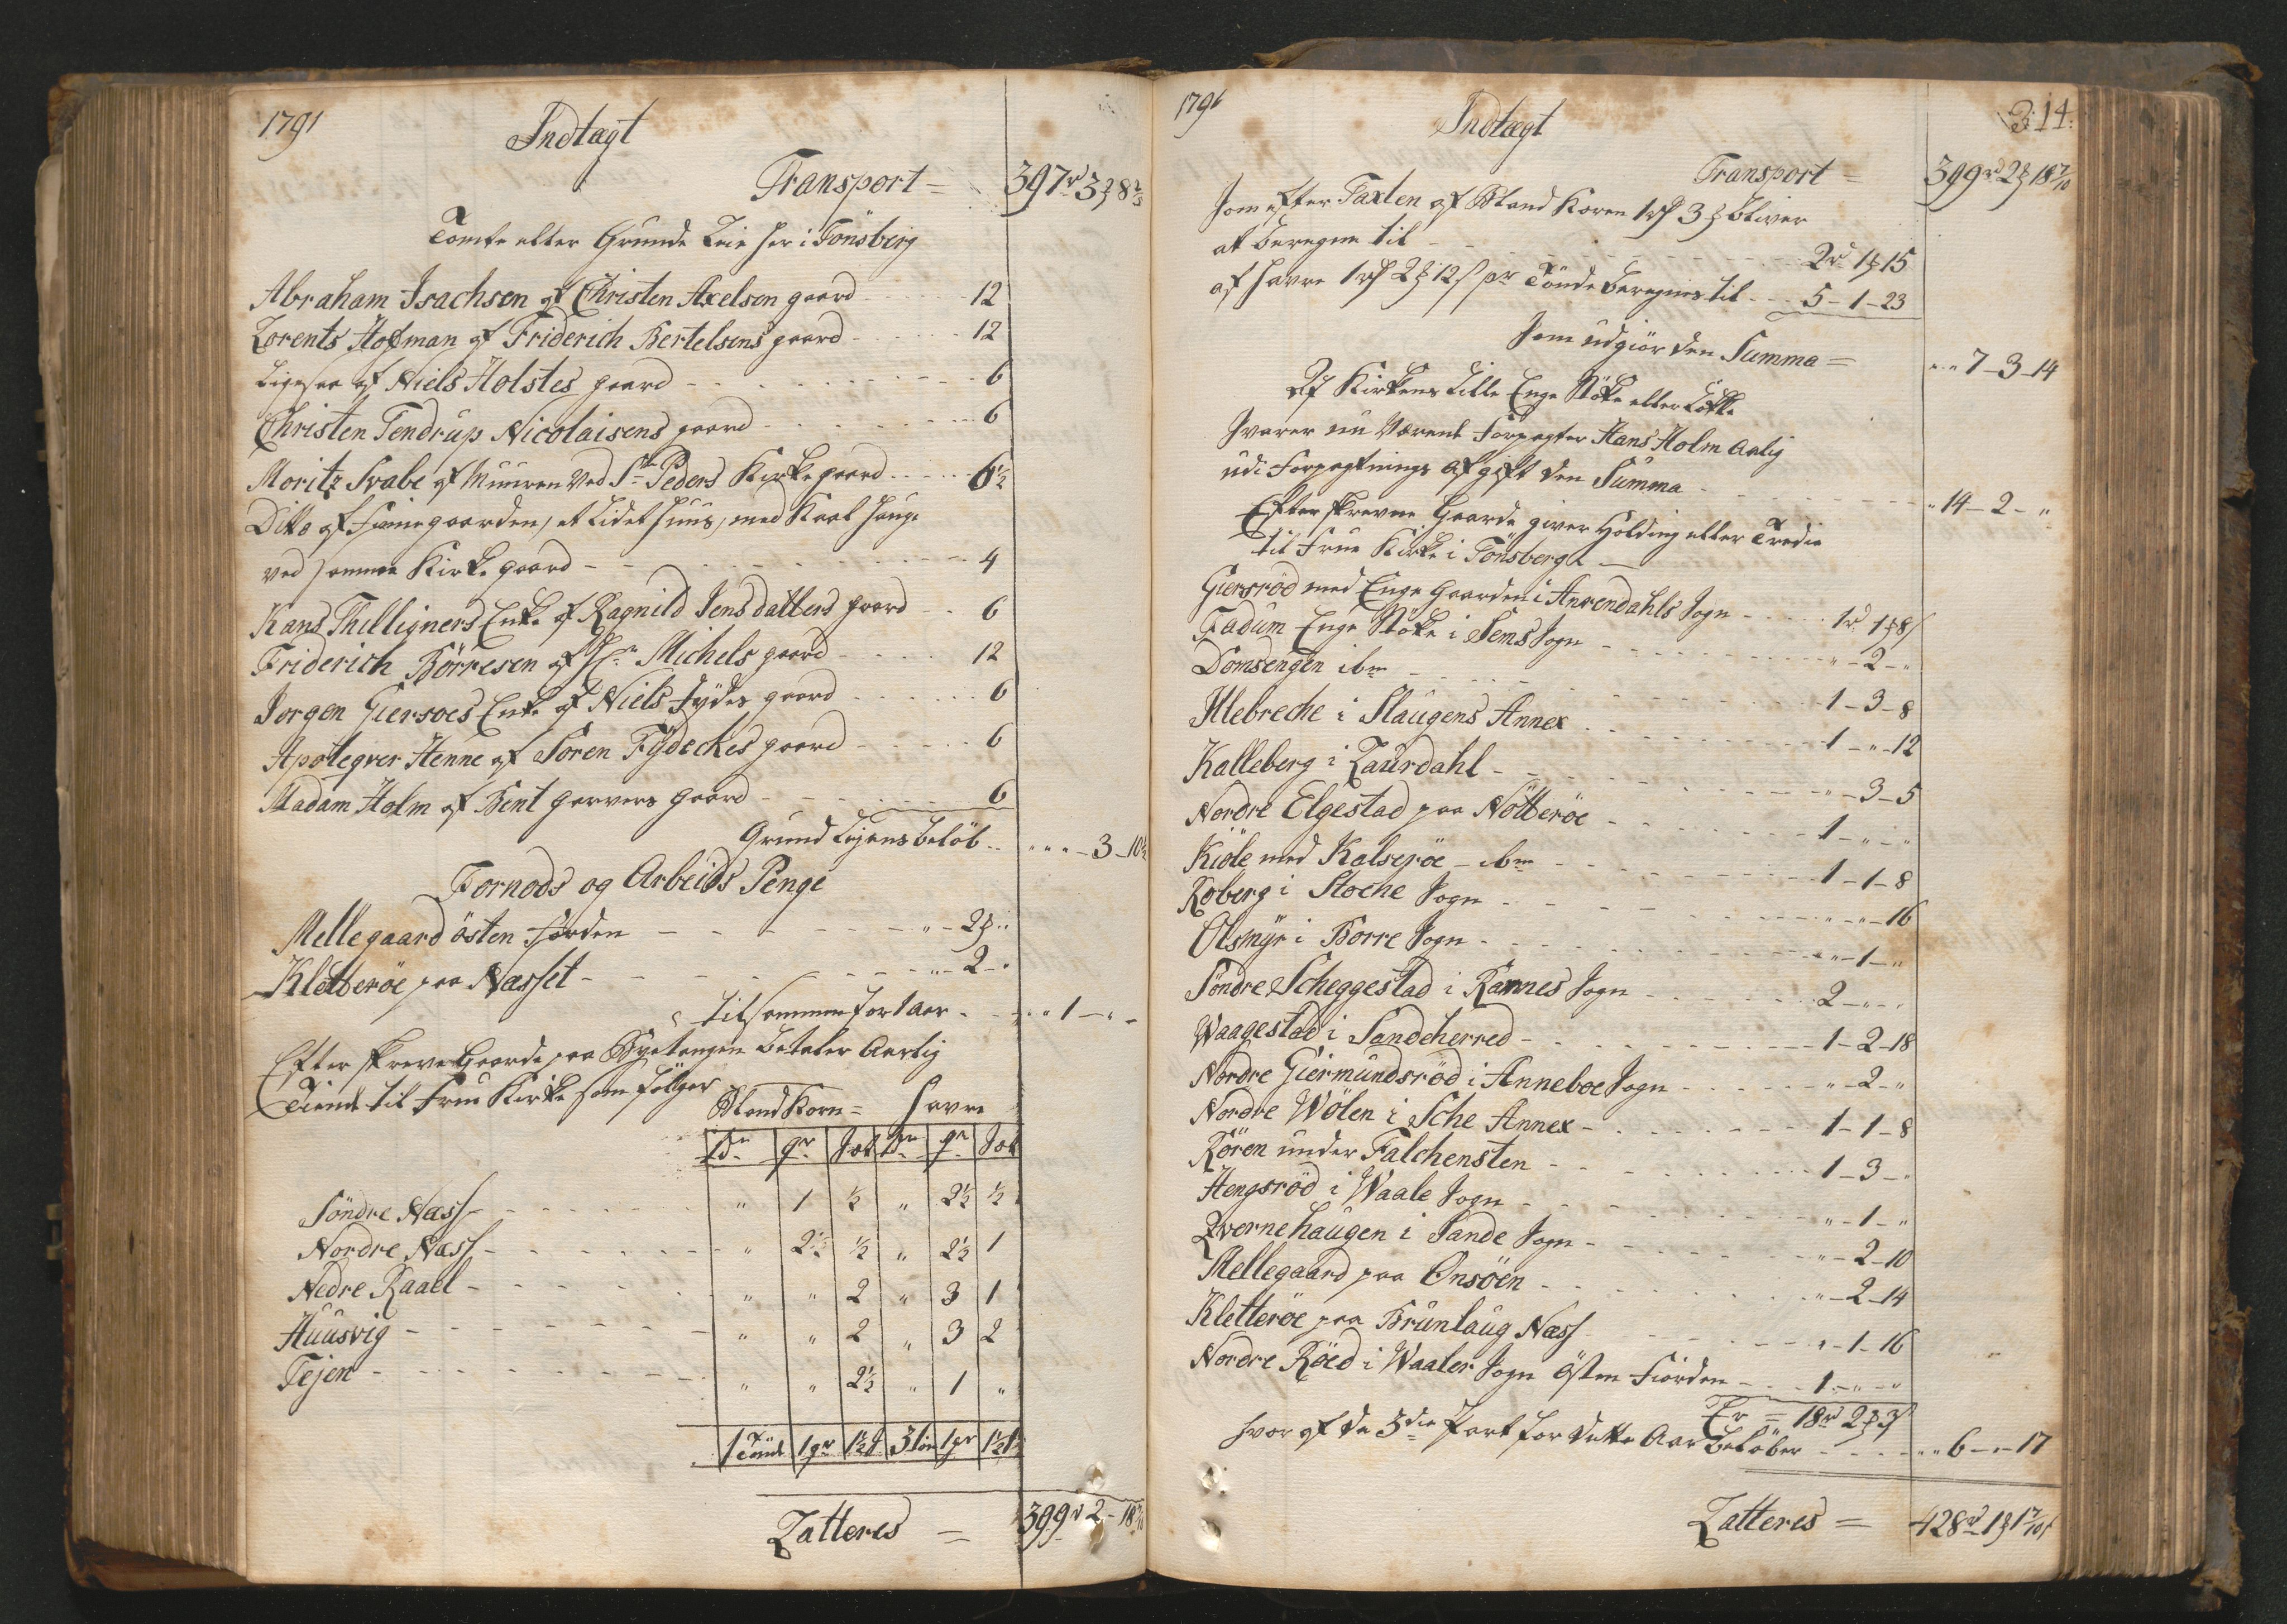 1791
Indtægt
Transport = 397rd 3 ß 8 1/5
Tomte eller Grunde Leie her i Tönsberg
Abraham Isachsen af Christen Axelsen gaard - - - 12
Lorents Hofman af Friderich Bertelsens gaard - - - 12
Ligesaa af Niels Holstes gaard - - - 6
Christen Tendrup Nicolaisens gaard - - - 6
Moritz Svabe af Muuren ved Ste Peders Kirkegaard - - - 6 1/2
Ditto af gaarden, et Lidet Huus, med Kaal Hauge
ved samme Kirkegaard - - - 4
Hans Thilligners Enke af Ragnild Jensdatters gaard - - 6
Friderich Börresen af Hr Michels gaard - - - 12
Jorgen Giersoes Enke af Niels Jydes gaard - - - 6
Apoteqver Henne af Soren Tydeckes gaard - - - 6
Madam Holm af Bent Garvers gaard - - - 6
Grund Leyens beløb - - " " - 3 - 10 1/2
Fornøds og Arbeids Penge
Mellegaard östen fiorden - - - " - 2 ß "
Kletterøe paa Næsset - - - " - 2 - "
tilsammen for 1 aar - - " 1 - " -
Efterskrevne Gaarde paa Byetangen betaler Aarlig
Tiende til Frue Kirke som følger
Bland Korn = Havre
Tr | qr | Sat | Tr | qr | Sat
Söndre Næss - - - " 1 1/2 " 2 1/2 1/2
Nordre Næss - - - " 2 1/2 1/2 " 2 1/2 1
Nedre Raael - - - " " 2 " 3 1
Huusvig - - - " " 2 " 3 2
Tejen - - - " " 2 1/2 " 1 "
1 Tönde 1 qr 1 1/2 S 3 tön 1 qr 1 1/2 S
Latteres = 399rd 2 - 18 7/10
1791
Indtægt
314.
Transport = 399rd 2 ß 18 7/10
som efter Taxten af Bland Koren 1 rd 3 ß bliver
at beregne til - - - 2rd 1 ß 15
af Havre 1 rd 2 ß 12 s pr Tönde beregnes til - - - 5 - 1 - 23
som udgiör den Summa = " " 7 - 3 - 14
Af Kirkens Lille Enge Støke eller Løkke
svarer nu værende Forpagter Hans Holm Aarlig
udi Forpagtnings Afgift den Summa - - - " 14 - 2 - "
Efterskrevne Gaarde giver Holding eller Tredie
til Frue Kirke i Tönsberg
Giersröd med Enge Gaarden i Anrendahls Sogn - - - 1rd 1 ß 8 s
Fadum Enge Støke i Sems Sogn - - - " - 2 - "
Domsengen ibm - - - 1 - 3 - 8
Illebreche i Slaugens Annex - - - 1 - " - 12
Kalleberg i Laurdahl - - - " - 3 - 5
Nordre Elgestad paa Nötteröe - - - 1 - " - "
Kiöle med Kalseröe - ibm - - - 1 - 1 - 8
Roberg i Stoche Sogn - - - " - " - 16
Olsmyr i Borre Sogn - - - " - 1 - "
Söndre Scheggestad i Ramnes Sogn - - - 2 - " - "
Waagestad i Sandeherred - - - 1 - 2 - 18
Nordre Giermundsröd i Anneboe Sogn - - - " - 2 - "
Nordre Wölen i Sche Annex - - - 1 - 1 - 8
Rören under Falchensten - - - 1 - 3 - "
Hengsröd i Waale Sogn - - - " - 1 - "
Qvernehaugen i Sande Sogn - - - " - 2 - 10
Mellegaard paa Onsöen - - - " - 2 - 14
Kletteröe paa Brunlaug Næss - - - " - 1 - 16
Nordre Röed i Waaler Sogn östen Fiörden - - - 1 - " - "
Er = 18rd 2 ß 3 s
hvoraf de 3die Part for dette Aar beløber - - - " " 6 - " - 17
Latteres = 428rd 1 ß 1 7/10 s